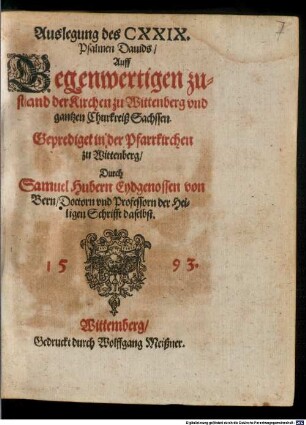 Auslegung des CXXIX.
Psalmen Dauids/
Auff
Gegenwertigen zu-
stand der Kirchen zu Wittenberg vnd
gantzen Churkreiß Sachssen.
Geprediget in der Pfarrkirchen
zu Wittenberg/
Durch
Samuel Hubern Eydgenossen von
Bern/ Doctorn vnd Professorn der Hei-
ligen Schrifft daselbst.
1593.
Wittemberg/
Gedruckt durch Wolffgang Meißner.